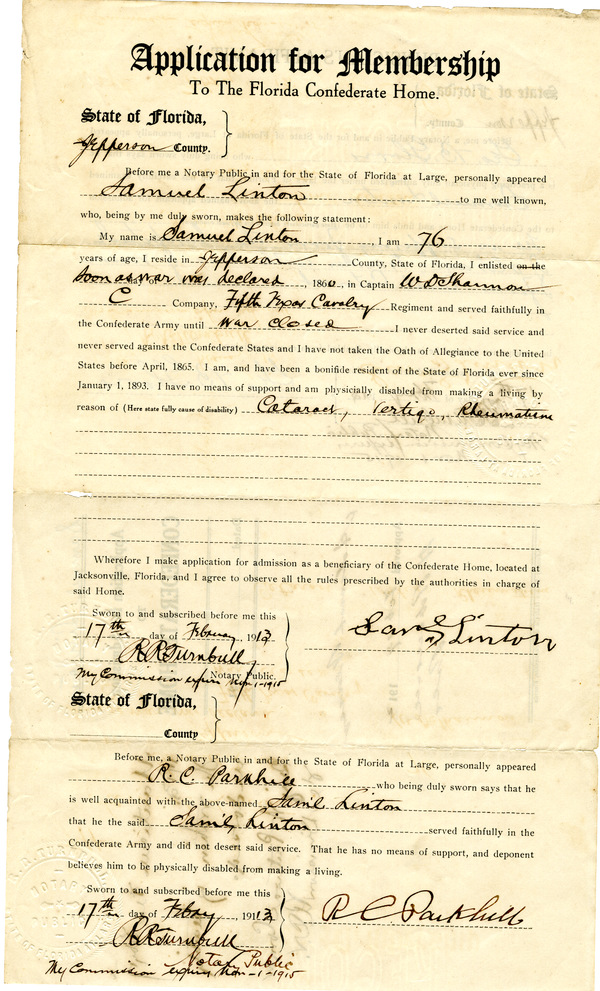 Application for Membership
To The Florida Confederate Home.
State of Florida,
Jefferson County.
Before me a Notary Public in and for the State of Florida at Large, personally appeared
Samuel Linton to me well known,
who, being by me duly sworn, makes the following statement:
My name is Samuel Linton, I am 76
years of age, I reside in Jefferson County, State of Florida, I enlisted on the
Soon as war was declared day of, 1860, in Captain W D Shannon
C Company, Fifth Texas Cavalry Regiment and served faithfully in
the Confederate Army until war closed I never deserted said service and
never served against the Confederate States and I have not taken the Oath of Allegiance to the United
States before April, 1865. I am, and have been a bonifide resident of the State of Florida ever since
January 1, 1893. I have no means of support and am physicially disabled from making a living by
reason of (Here state fully cause of disability) Cataract, Vertigo, Rheumatism
Wherefore I make application for admission as a beneficiary of the Confederate Home, located at
Jacksonville, Florida, and I agree to observe all the rules prescribed by the authorities in charge of
said Home.
Sworn to and subscribed before me this
17th day of February, 1913
Saml Linton
R R Turnbull,
Notary Public.
My Commission expires Nov-1-1915
State of Florida,
County
Before me, a Notary Public in and for the State of Florida at Large, personally appeared
R. C. Parkhill who being duly sworn says that he
is well acquainted with the above-named Saml Linton
that he the said Saml Linton served faithfully in the
Confederate Army and did not desert said service. That he has no means of support, and deponent
believes him to be physically disabled from making a living.
Sworn to and subscribed before me this
17th day of Febry, 1913
R C Parkhill
R R Turnbull
Notary Public
My Commission expires Nov-1-1915